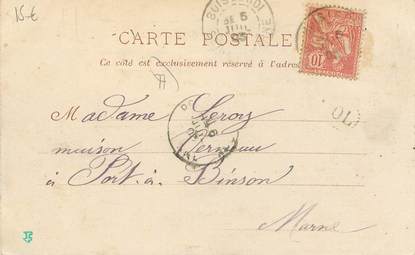 15€
CARTE POSTALE
Ce côté est exclusivement réservé à l'adresse
10
OL
Madame Leroy
maison Verneau
à Port-à-Binson
Marne